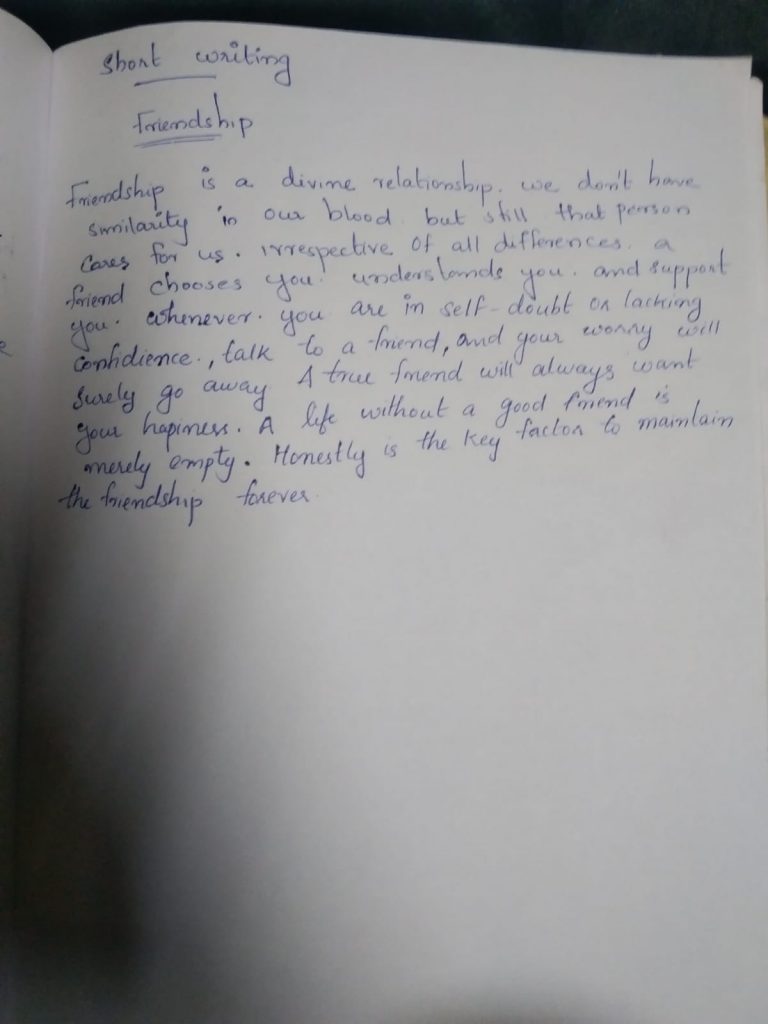 Short writing
Friendship
Friendship is a divine relationship. we don't have
similarity in our blood. but still that person
cares for us. irrespective of all differences. a
friend chooses you. understands you. and support
you. whenever. you are in self-doubt or lacking
confidience., talk to a friend, and your worry will
surely go away A true friend will always want
your hapiness. A life without a good friend is
merely empty. Honestly is the key factor to maintain
the friendship forever.